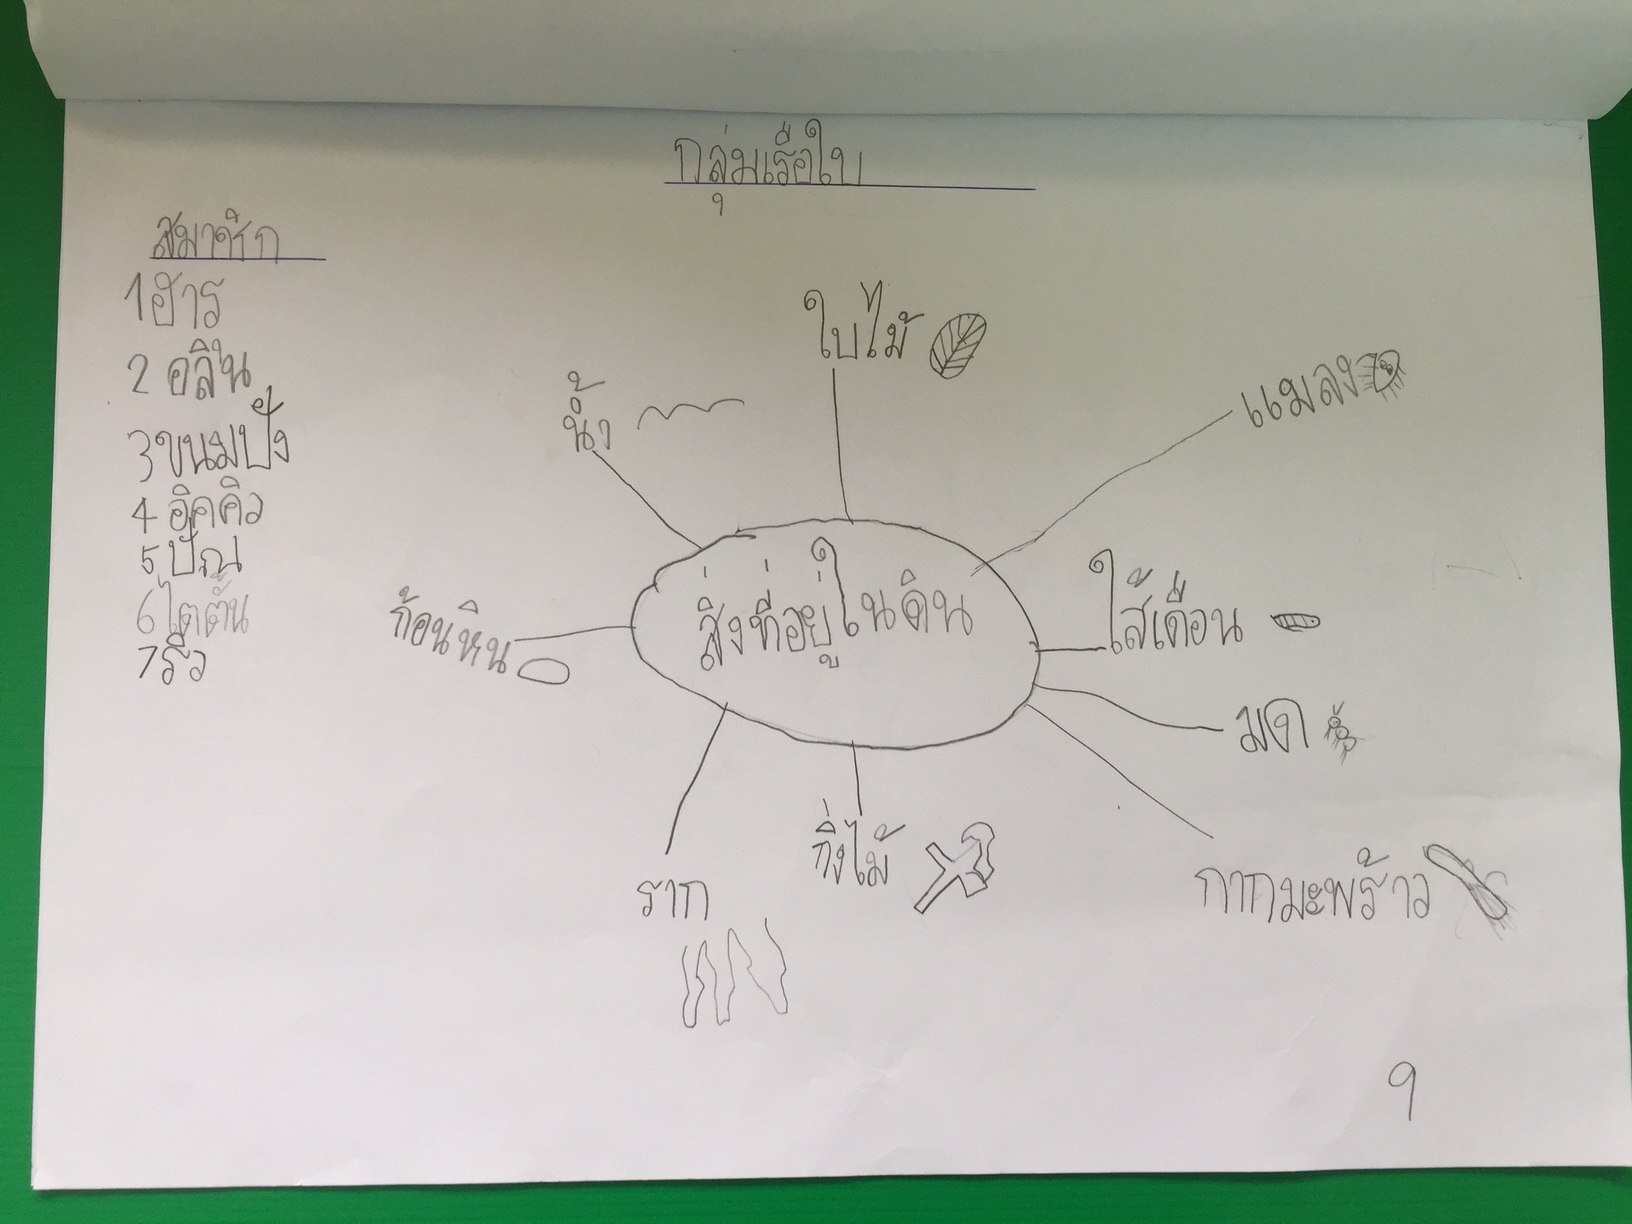 กลุ่มเรือใบ
สมาชิก
1 ฮาร
2 อลิน
3 ขนมปัง
4 อิคคิว
5 ปัณ
6 ไตตั้น
7 ริว
ใบไม้
น้ำ
แมลง
สิ่งที่อยู่ในดิน
ใส้เดือน
ก้อนหิน
มด
กิ่งไม้
ราก
กากมะพร้าว
9